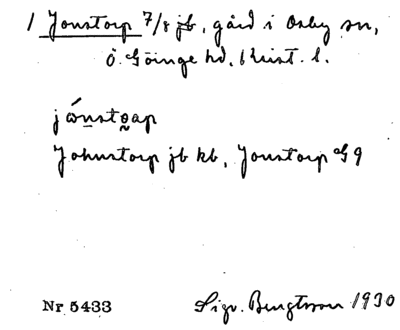 1 Jonstorp 7/8 jb, gård i Osby sn,
Ö. Göinge hd, Krist. l.
Johnstorp jb kb, Jonstorp GS 9
Nr 5433 Sigv. Bengtsson 1930